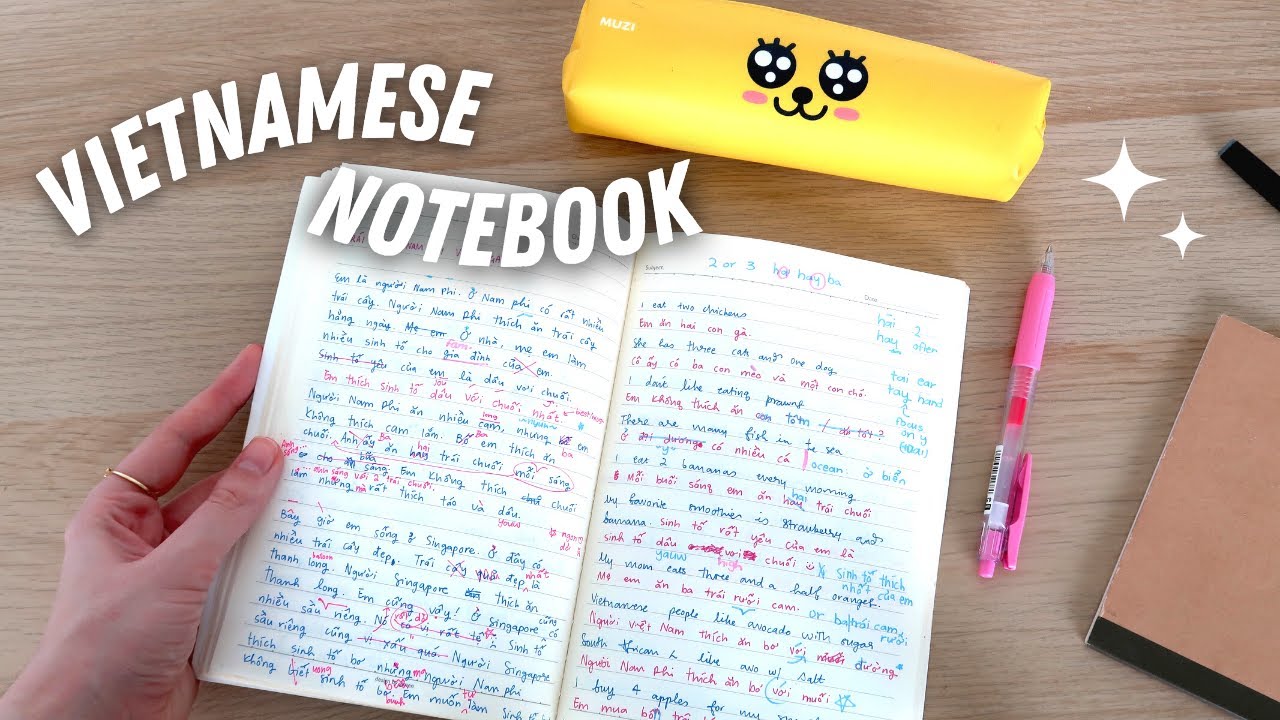 VIETNAMESE
NOTEBOOK
MUZI
Em là người Nam Phi. Ở Nam phi có rất nhiều
trái cây. Người Nam Phi thích ăn trái cây
hàng ngày. Mẹ em ở nhà, mẹ em làm
nhiều sinh tố cho gia đình của em.
Sinh tố yêu của em là dâu với chuối.
Em thích sinh tố dâu với chuối nhất.
Người Nam Phi ăn nhiều cam, nhưng em
không thích cam lắm. Bố em thích ăn
chuối. Anh ấy ăn hai trái chuối mỗi sáng
sáng. Em không thích chuối
lắm nhưng rất thích táo và dâu.
Bây giờ em sống ở Singapore. Ở đây có
nhiều trái cây đẹp. Trái cây đẹp nhất là
thanh long. Người Singapore thích ăn
thanh long. Em cũng vậy! Ở Singapore có
nhiều sầu riêng. Nó
sầu riêng cũng Người Singapore
thích sinh tố bơ nhưng người Nam Phi
không biết sinh tố bơ. Em muốn làm sinh tố
Subject
2 or 3 hai hay ba
Date
I eat two chickens
Em ăn hai con gà.
She has three cats and one dog
Cô ấy có ba con mèo và một con chó.
I don't like eating prawns
Em không thích ăn tôm
There are many fish in the sea
Ở có nhiều cá
ocean. ở biển
I eat 2 bananas every morning
Mỗi buổi sáng em ăn hai trái chuối
My favorite smoothies is strawberry and
banana sinh tố rất yêu của em là
sinh tố dâu với chuối
sinh tố thích
nhất của em
My mom eats three and a half oranges.
Mẹ em ăn ba trái rưỡi cam.
or ba trái cam
rưỡi
Vietnamese people like avocado with sugar
Người việt Nam thích ăn bơ với đường
South African's like avo w/ salt
Người Nam Phi thích ăn bơ với muối
I buy 4 apples for my
Em mua bốn
hai 2
hay often
tai ear
tay hand
focus
on y